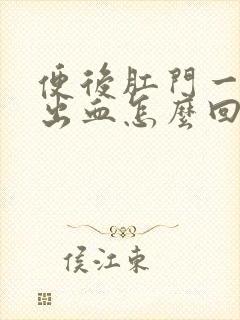 便後肛門一
出血怎麼回
侯江東